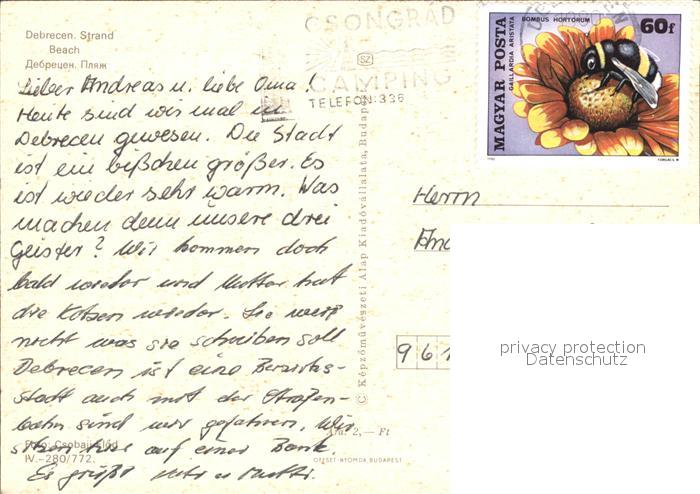 Debrecen. Strand
Beach
Дебрецен. Пляж
CSONGRÁD
CAMPING
TELEFON: 336
SZ
Lieber Andreas u. liebe Oma!
Heute sind wir mal in
Debrecen gewesen. Die Stadt
ist ein bißchen größer. Es
ist wieder sehr warm. Was
machen denn unsere drei
Geister? Wir kommen doch
bald wieder und Mutter hat
die Katzen wieder. Sie weiß
nicht was sie schreiben soll
Debrecen ist eine Bezirks-
stadt auch mit der Straßen-
bahn sind wir gefahren. Wir
sitzen hier auf einer Bank.
Es grüßt Vati u Mutti.
Foto: Csobaji Előd
IV.-280/772.
Ára: 2,— Ft
OFFSET-NYOMDA, BUDAPEST
© Képzőművészeti Alap Kiadóvállalata, Budapest
MAGYAR POSTA
GAILLARDIA ARISTATA
BOMBUS HORTORUM
60f
Herrn
And
961
privacy protection
Datenschutz